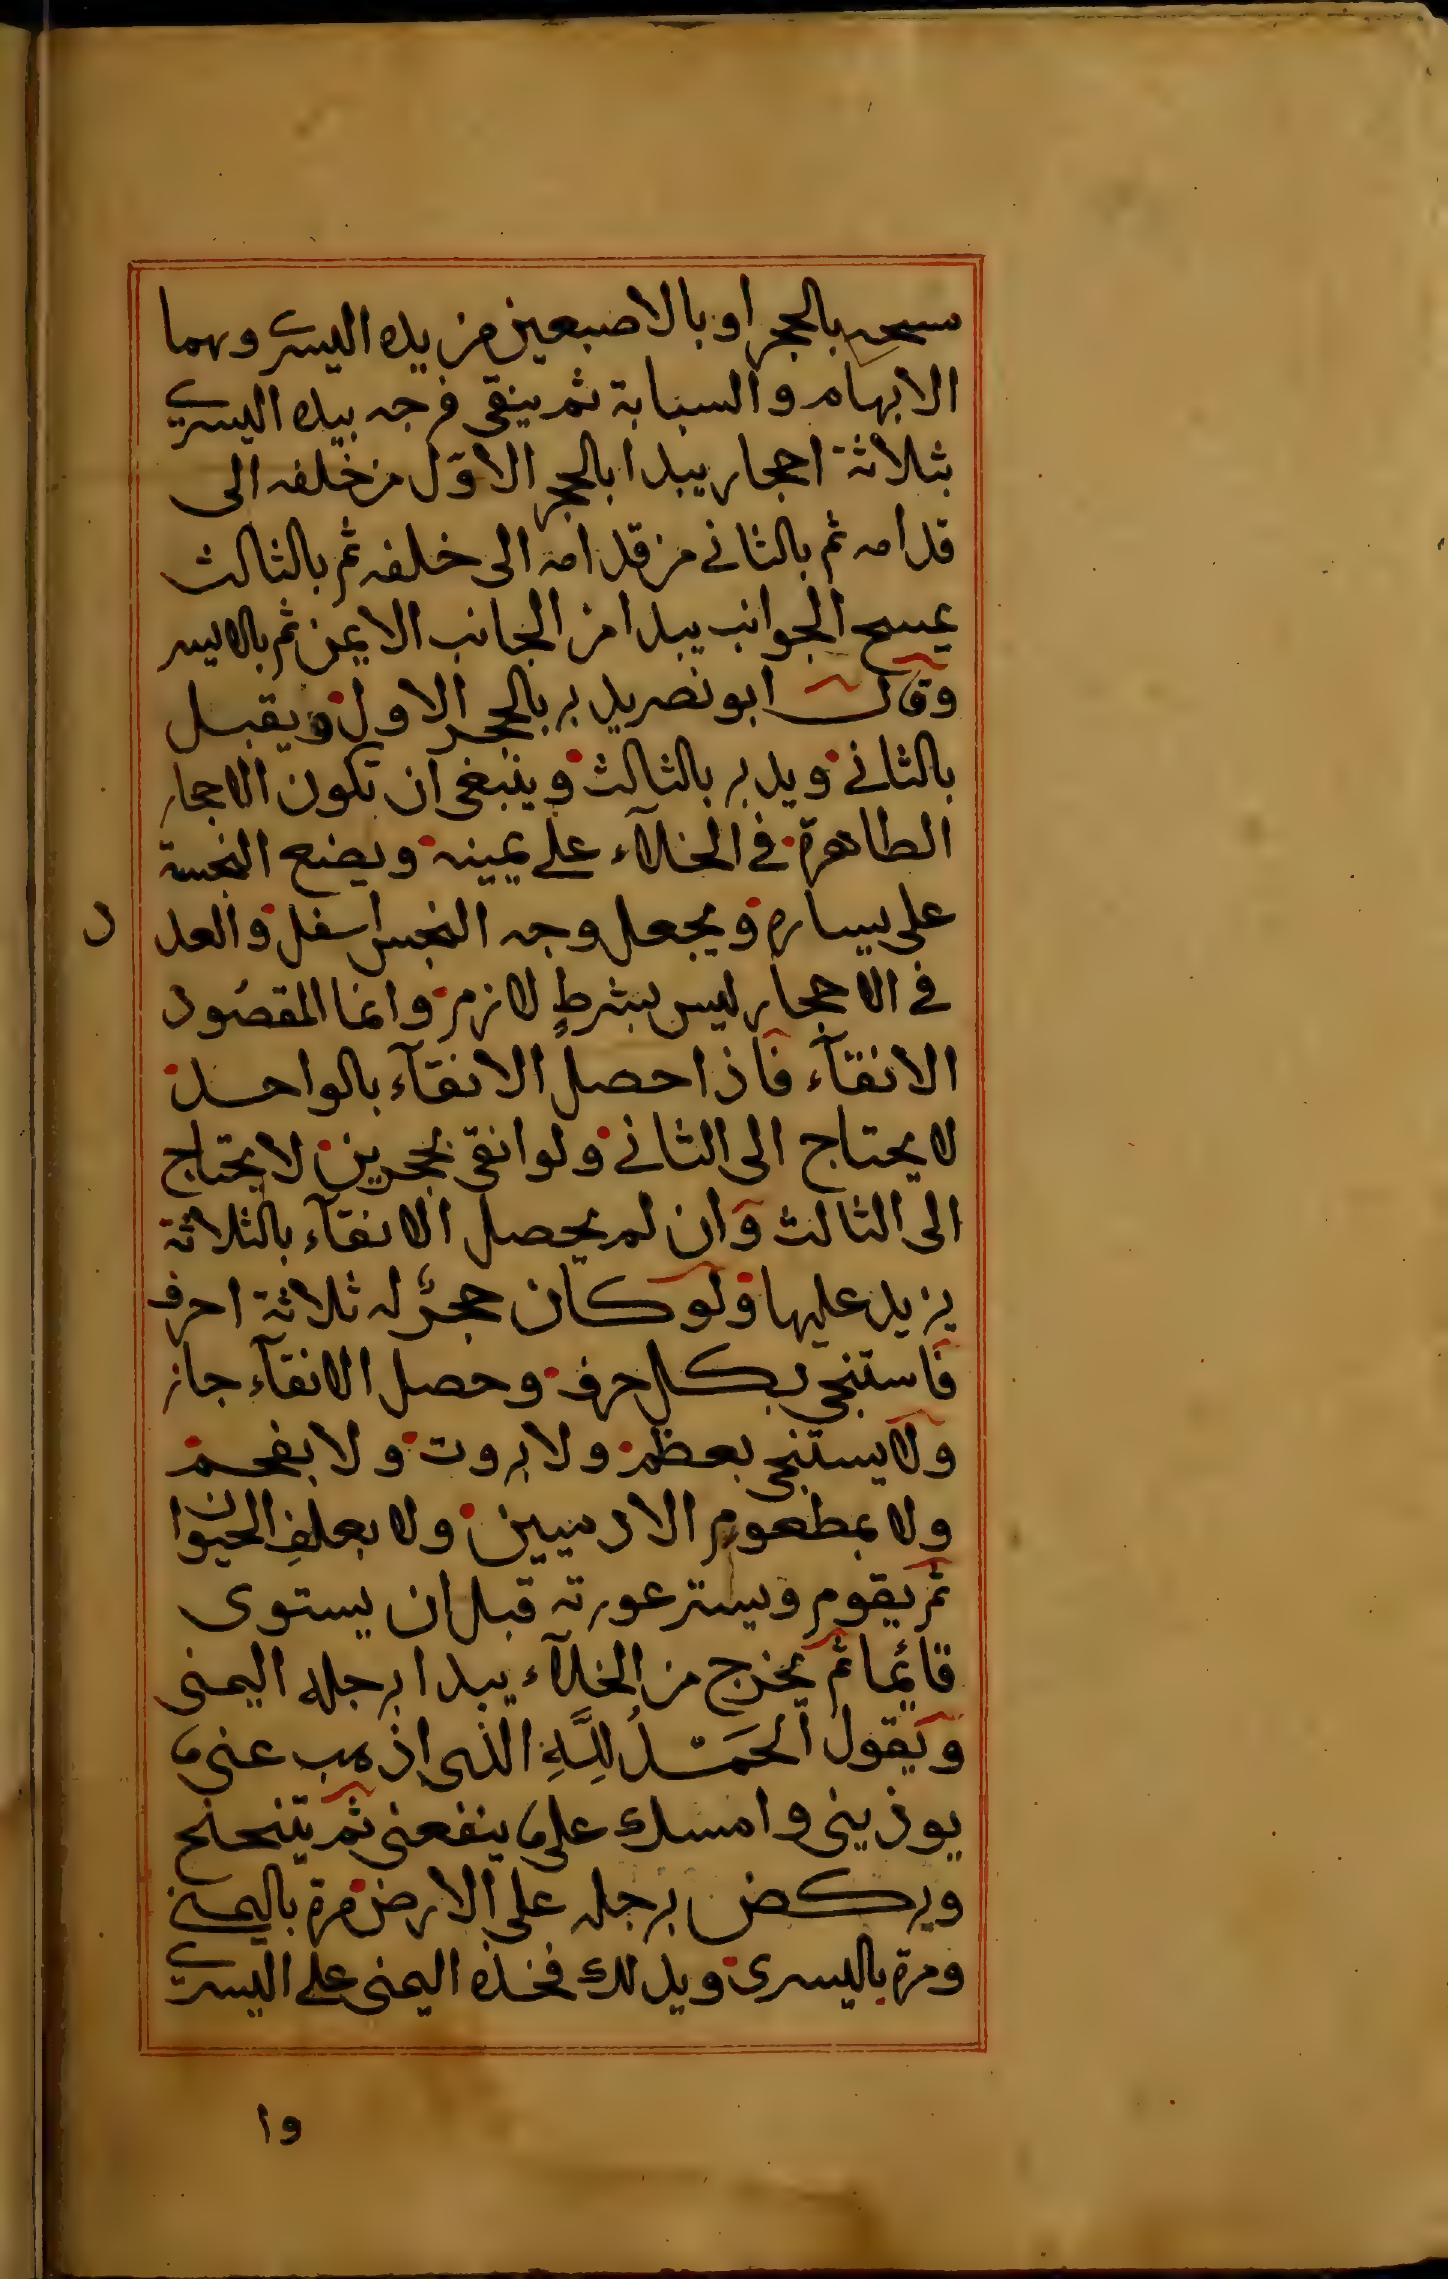 سحه بالحجر او بالاصبعين من يده اليسرى وهما
الابهام والسبابة ثم ينقى فرجه بيده اليسرى
بثلاثة احجار يبدا بالحجر الاول من خلفه الى
قدامه ثم بالثاني من قدامه الى خلفه ثم بالثالث
يمسح الجوانب يبدا من الجانب الايمن ثم بالايسر
وقال ابو نصر يدبر بالحجر الاول ويقبل
بالثاني ويدبر بالثالث وينبغي ان تكون الاحجار
الطاهرة في الخلآء على يمينه ويضع النجسة
على يساره ويجعل وجه النجس اسفل والعدد
في الاحجار ليس بشرطٍ لازم وانما المقصُود
الانقآء فاذا حصل الانقآء بالواحد
لا يحتاج الى الثاني ولو انقى بحجرين لا يحتاج
الى الثالث وان لم يحصل الانقآء بالثلاثة
يزيد عليها ولو كان حجرٌ له ثلاثة احرف
فاستنجى بكل حرف وحصل الانقآء جاز
ولا يستنجى بعظم ولا بروت ولا بفحم
ولا بمطعوم الادميين ولا بعلفِ الحيوان
ثم يقوم ويستر عورته قبل ان يستوى
قائما ثم يخرج من الخلآء يبدا برجله اليمنى
ويقول الحَمْدُ لِلَّهِ الذى اذهب عنى ما
يوذينى وامسك على ما ينفعنى ثم يتنحنح
ويركض برجله على الارض مرة باليمنى
ومرة باليسرى ويدلك فخذه اليمنى على اليسرى
وا